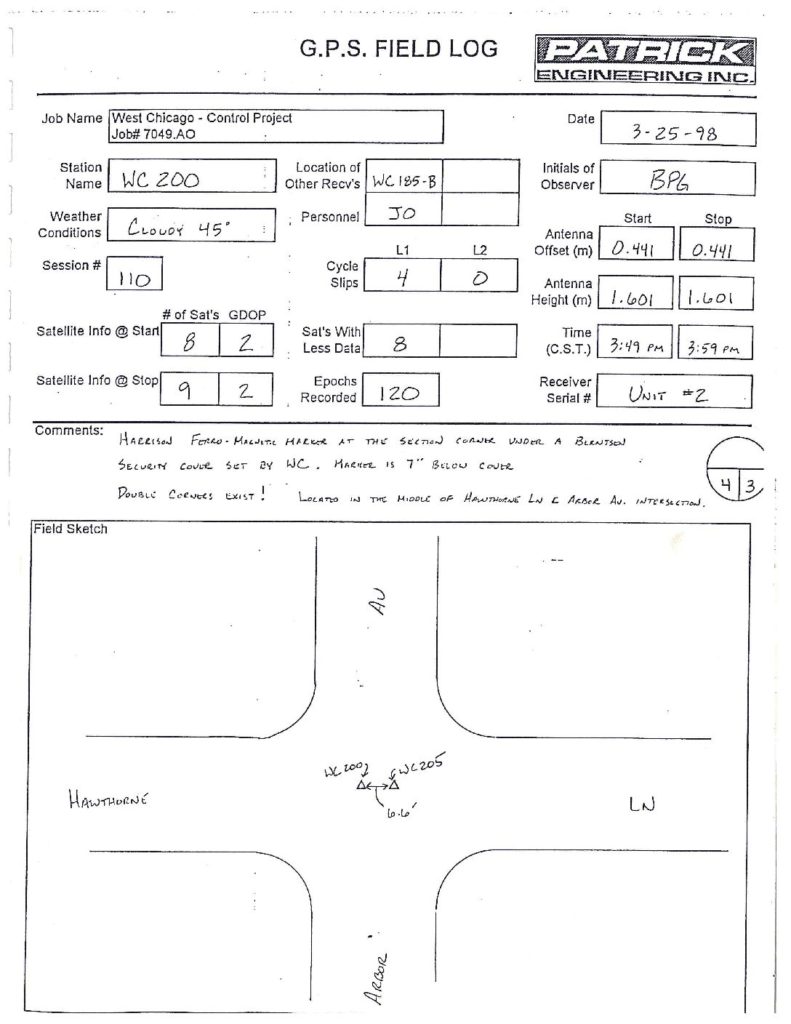 G.P.S. FIELD LOG
PATRICK
ENGINEERING INC.
Job Name West Chicago - Control Project
Job# 7049.AO
Date 3-25-98
Station Name WC 200
Location of Other Recv's WC 185-B
Initials of Observer BPG
Weather Conditions CLOUDY 45°
Personnel JO
Start Stop
Antenna Offset (m) 0.441 0.441
Session # 110
L1 L2
Cycle Slips 4 0
Antenna Height (m) 1.601 1.601
# of Sat's GDOP
Satellite Info @ Start 8 2
Sat's With Less Data 8
Time (C.S.T.) 3:49 PM 3:59 PM
Satellite Info @ Stop 9 2
Epochs Recorded 120
Receiver Serial # UNIT #2
Comments: HARRISON FERRO-MAGNETIC MARKER AT THE SECTION CORNER UNDER A BERNTSEN
SECURITY COVER SET BY WC. MARKER IS 7" BELOW COVER
DOUBLE CORNERS EXIST! LOCATED IN THE MIDDLE OF HAWTHORNE LN & ARBOR AV. INTERSECTION.
4 3
Field Sketch
AV
WC200 WC205
6.6'
HAWTHORNE LN
ARBOR